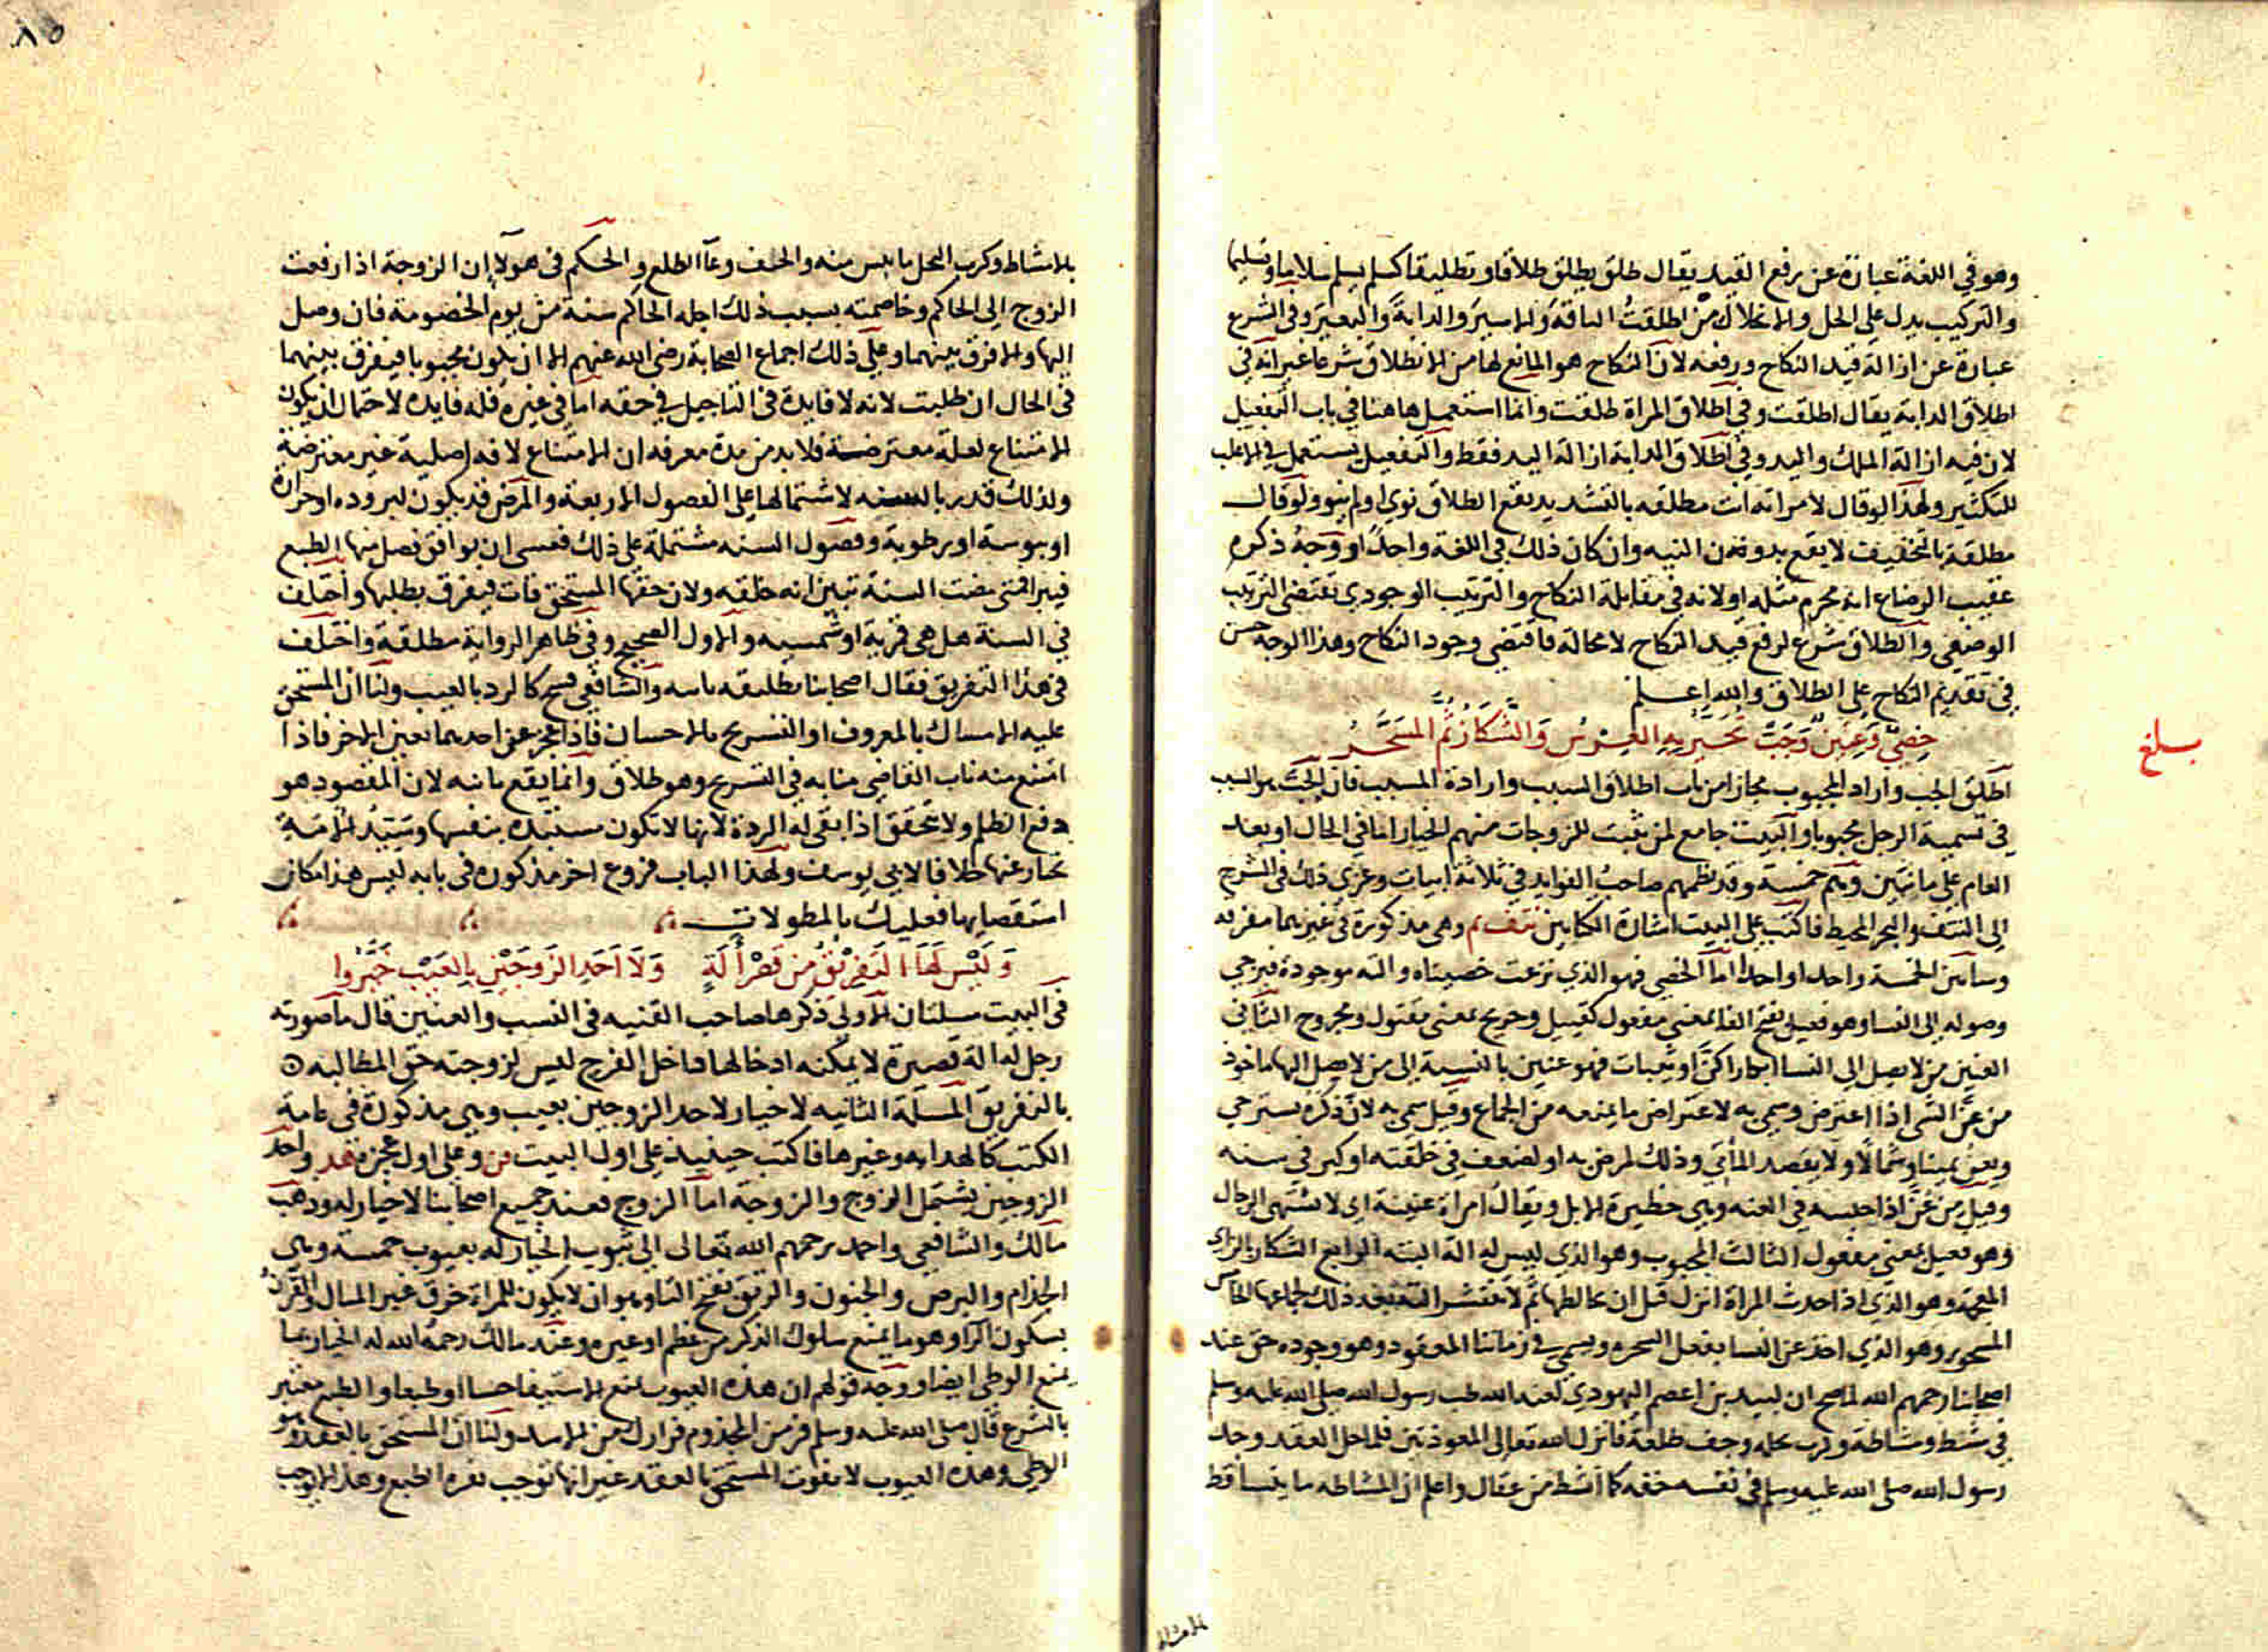 وهو في اللغة عبارة عن رفع القيد يقال طلق يطلق طلاقا وتطليقا كسلم يسلم سلاما وتسليما
والتركيب يدل على الحل والانحلال من اطلقت الناقة والاسير والدابة والبعير وفي الشرع
عبارة عن ازالة قيد النكاح ورفعه لان النكاح هو المانع لها من الانطلاق شرعا غير انه في
اطلاق الدابة يقال اطلقت وفي اطلاق المراة طلقت وانما استعمل هاهنا في باب التفعيل
لان فيه ازالة الملك واليد وفي اطلاق الدابة ازالة اليد فقط والتفعيل يستعمل في الاغلب
للتكثير ولهذا لو قال لامراته انت مطلقه بالتشديد يقع الطلاق نوى او لم ينو ولو قال
مطلقة بالتخفيف لا يقع بدون النيه وان كان ذلك في اللغة واحدا ووجه ذكره
عقيب الرضاع انه محرم مثله او لانه في مقابلة النكاح والترتيب الوجودي يقتضى الترتيب
الوضعي والطلاق شرع لرفع قيد النكاح لا محالة فاقتضى وجود النكاح وهذا الوجه حسن
في تقديم النكاح على الطلاق والله اعلم
خصي وعنين وجب تخير به العرس والشكاز ثم المسحر
اطلق الجب واراد المجبوب مجازا من باب اطلاق السبب وارادة المسبب فان الجب هو السبب
في تسمية الرجل مجبوبا والبيت جامع لمن يثبت للزوجات منهم الخيار اما في الحال او بعد
العام على ما نبين وهم خمسة وقد نظمهم صاحب الفوايد في ثلاثة ابيات وعزى ذلك في الشرح
الى النتف والبحر المحيط فاكتب على البيت اشارة الكتابين نتف م وهي مذكورة في غيرهما مفرقه
وسابين الخمسة واحدا واحدا اما الخصي فهو الذي نزعت خصيتاه والته موجودة فيرجى
وصوله الى النسا وهو فعيل بفتح الفا بمعنى مفعول كقتيل وجريح بمعنى مقتول ومجروح الثاني
العنين من لا يصل الى النسا ابكارا كن او ثيبات فهو عنين بالنسبة الى من لا يصل اليها ماخوذ
من عن الشي اذا اعترض وسمي به لاعتراض ما يمنعه من الجماع وقيل سمي به لان ذكره يسترخي
ويعن يمينا وشمالا ولا يقصد الماتي وذلك لمرض به او لضعف في خلقته او كبر في سنه
وقيل من عن اذا حبسه في العنه وهي حظيرة الابل ويقال امراة عنينة اى لا تشتهى الرجال
وهو فعيل بمعنى مفعول الثالث المجبوب وهو الذي ليس له الة البته الرابع الشكاز بالزاى
المعجمة وهو الذي اذا حدث المراة انزل قبل ان يخالطها ثم لا تنتشر الته بعد ذلك لجماعها الخامس
المسحور وهو الذي اخذ عن النسا بفعل السحره ويسمى في زماننا المعقود وهو وجوده حق عند
اصحابنا رحمهم الله لما صح ان لبيد بن اعصم اليهودي لعنه الله طب رسول الله صلى الله عليه وسلم
في مشط ومشاطة وكرب نخله وجف طلعة فانزل الله تعالى المعوذتين فلما حل العقد وجد
رسول الله صلى الله عليه وسلم في نفسه خفه كانما انشط من عقال واعلم ان المشاطه ما يتساقط
بلغ
٨٥
بالامتشاط وكرب النخل ما يبس منه والجف وعاء الطلع والحكم في هولاء ان الزوجة اذا رفعت
الزوج الى الحاكم وخاصمته بسبب ذلك اجله الحاكم سنة من يوم الخصومة فان وصل
اليها والا فرق بينهما وعلى ذلك اجماع الصحابة رضى الله عنهم الا ان يكون مجبوبا فيفرق بينهما
في الحال ان طلبت لانه لا فايدة في التاجيل في حقه اما في غيره فله فايده لاحتمال ان يكون
الامتناع لعلة معترضة فلا بد من مدة معرفه ان الامتناع لافة اصلية غير معترضة
ولذلك قدر بالسنه لاشتمالها على الفصول الاربعة والمرض قد يكون لبروده او حرارة
او يبوسة او رطوبة وفصول السنه مشتملة على ذلك فعسى ان يوافق فصل منها الطبع
فيبرا فمتى مضت السنة تبين انه خلقه ولان حقها المستحق فات فيفرق بطلبها واختلف
في السنة هل هى قمرية او شمسيه والاول الصحيح وفي ظاهر الرواية مطلقة واختلف
في هذا التفريق فقال اصحابنا تطليقه باينه والشافعي فسخ كالرد بالعيب ولنا ان المستحق
عليه الامساك بالمعروف او التسريح بالاحسان فاذا عجز عن احدهما تعين الاخر فاذا
امتنع منه ناب القاضي منابه في التسريح وهو طلاق وانما يقع باينه لان المقصود هو
دفع الظلم ولا يتحقق اذا بقى له الردة لانها لا تكون مستبده بنفسها وسيد الامة
يختار عنها خلافا لابي يوسف ولهذا الباب فروع اخر مذكوره في بابه ليس هذا مكان
استقصايها فعليك بالمطولات
وليس لها التفريق من قصر الة ولا احد الزوجين بالعيب خيروا
في البيت مسلتان الاولى ذكرها صاحب القنيه في النسب والعنين قال ما صورته
رجل له الة قصيرة لا يمكنه ادخالها داخل الفرج ليس لزوجته حق المطالبه
بالتفريق المسلة الثانيه لا خيار لاحد الزوجين بعيب وهي مذكورة في عامة
الكتب كالهدايه وغيرها فاكتب حينيذ على اول البيت قن وعلى اول عجزه هد واحد
الزوجين يشتمل الزوج والزوجة اما الزوج فعند جميع اصحابنا لا خيار له وذهب
مالك والشافعي واحمد رحمهم الله تعالى الى ثبوت الخيار له بعيوب خمسة وهي
الجذام والبرص والجنون والرتق بفتح التا وهو ان لا يكون للمراة خرق غير المبال والقرن
بسكون الرا وهو ما يمنع سلوك الذكر من عظم او غيره وعند مالك رحمه الله له الخيار بما
يمنع الوطى ايضا ووجه قولهم ان هذه العيوب تمنع الاستيفا حسا او طبعا والطبع معتبر
بالشرع قال صلى الله عليه وسلم فر من المجذوم فرارك من الاسد ولنا ان المستحق بالعقد هو
الوطي وهذه العيوب لا تفوت المستحق بالعقد غير انها توجب نفرة الطبع وهذا لا يوجب